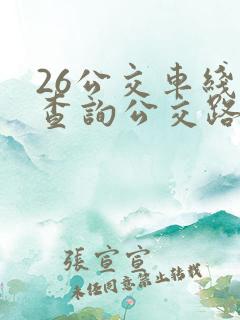 26公交車綫
查詢公交路
張宣宣
未經同意禁止轉載